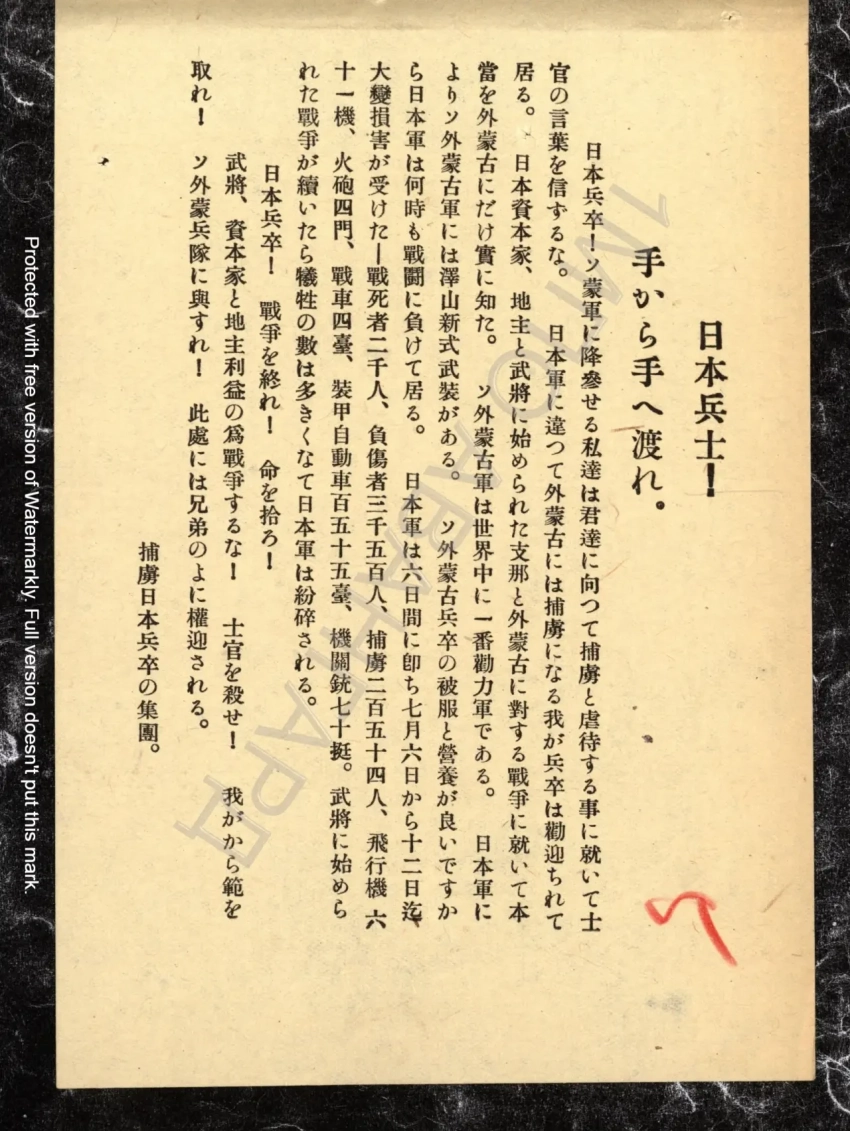 日本兵士！
手から手へ渡れ。
日本兵卒！ソ蒙軍に降參せる私達は君達に向つて捕虜と虐待する事に就いて士
官の言葉を信ずるな。　日本軍に違つて外蒙古には捕虜になる我が兵卒は勸迎ちれて
居る。　日本資本家、地主と武將に始められた支那と外蒙古に對する戰爭に就いて本
當を外蒙古にだけ實に知た。　ソ外蒙古軍は世界中に一番勸力軍である。　日本軍に
よりソ外蒙古軍には澤山新式武裝がある。　ソ外蒙古兵卒の被服と營養が良いですか
ら日本軍は何時も戰鬪に負けて居る。　日本軍は六日間に卽ち七月六日から十二日迄、
大變損害が受けた―戰死者二千人、負傷者三千五百人、捕虜二百五十四人、飛行機六
十一機、火砲四門、戰車四臺、裝甲自動車百五十五臺、機關銃七十挺。武將に始めら
れた戰爭が續いたら犧牲の數は多きくなて日本軍は紛碎される。
日本兵卒！　戰爭を終れ！　命を拾ろ！
武將、資本家と地主利益の爲戰爭するな！　士官を殺せ！　我がから範を
取れ！　ソ外蒙兵隊に與すれ！　此處には兄弟のよに權迎される。
捕虜日本兵卒の集團。
Protected with free version of Watermarkly. Full version doesn't put this mark.